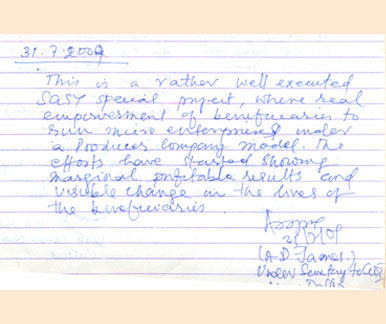 31.7.2009
This is a rather well executed
SGSY special project, where real
empowerment of beneficiaries to
run micro enterprises under
a Producers Company model. The
efforts have started showing
marginal profitable results and
visible change in the lives of
the beneficiaries
(A.D. James.)
Under Secretary to